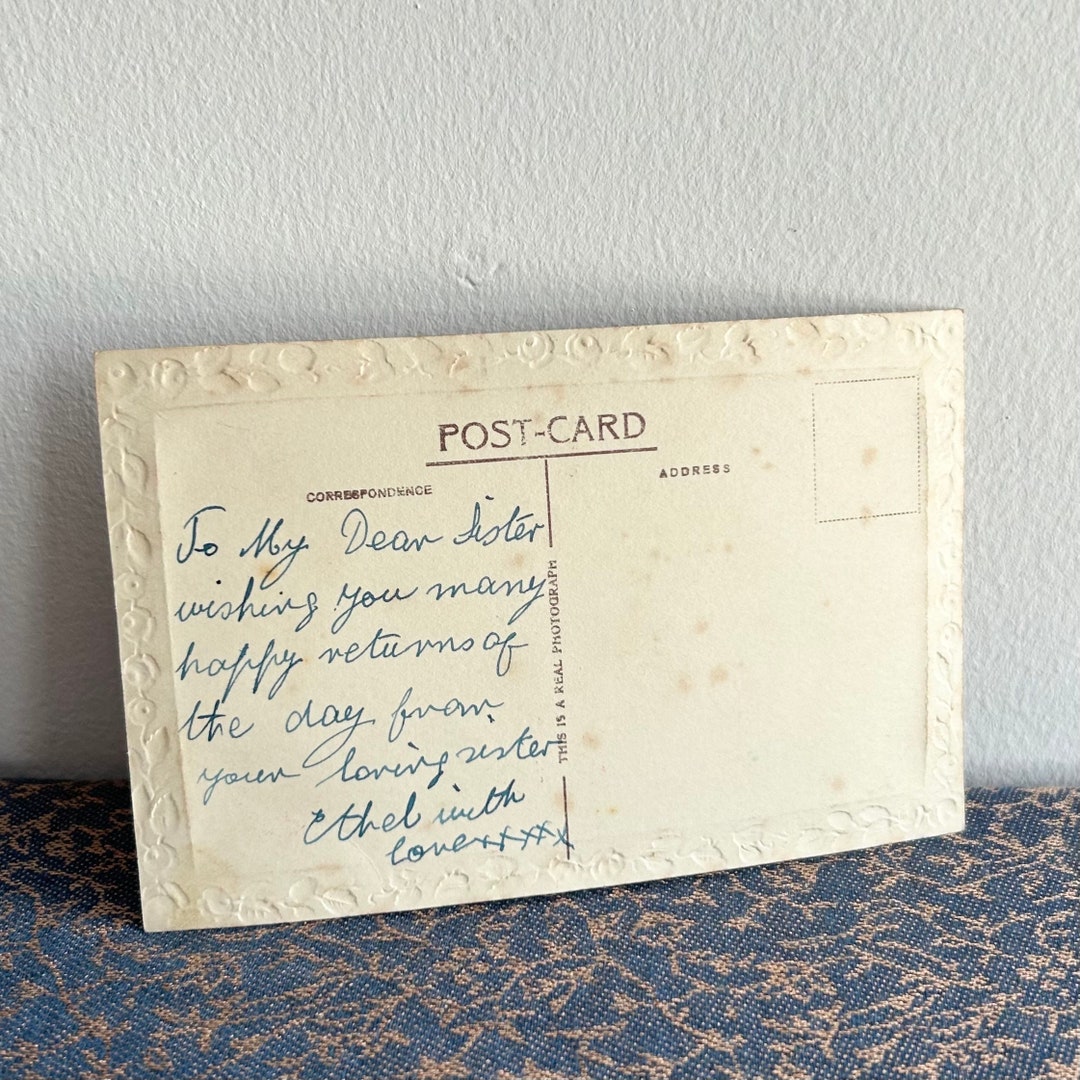 POST-CARD
CORRESPONDENCE
ADDRESS
THIS IS A REAL PHOTOGRAPH
To My Dear Sister
wishing you many
happy returns of
the day from
your loving sister
Ethel with
love xxxxx